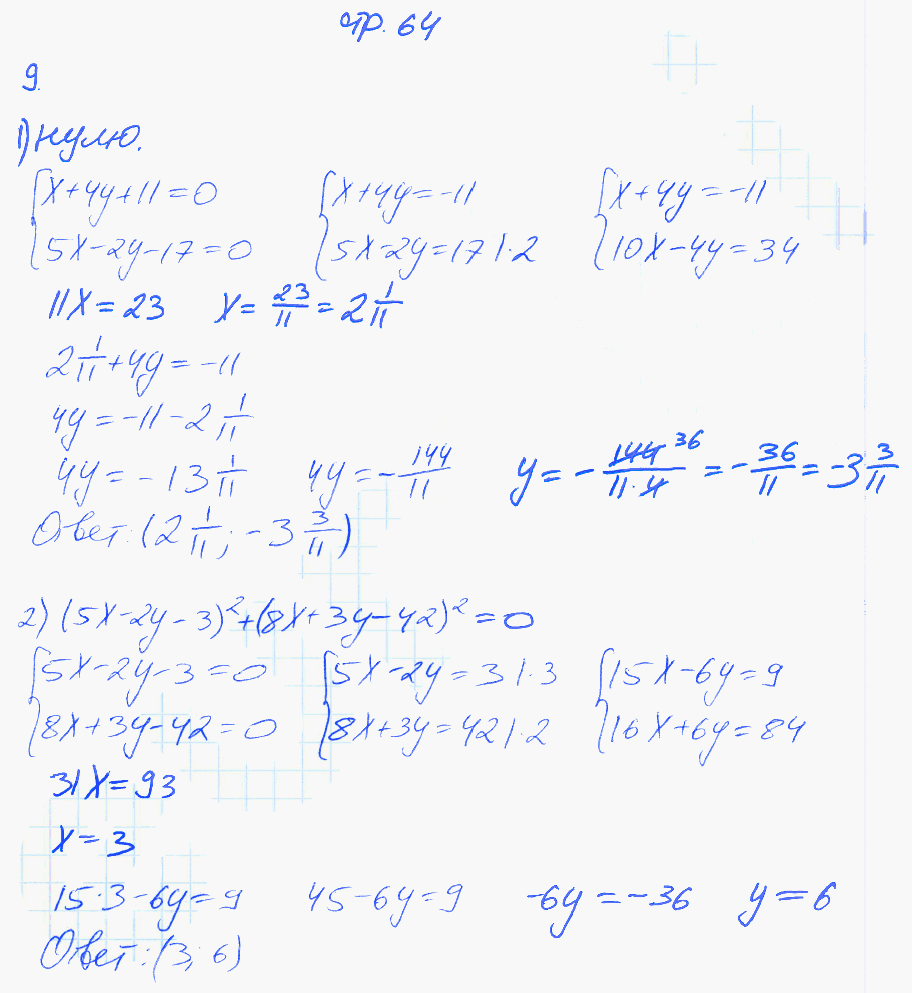 стр. 64
9.
1) нулю.
{x+4y+11=0 {x+4y=-11 {x+4y=-11
{5x-2y-17=0 {5x-2y=17 |·2 {10x-4y=34
11x=23 x=23/11=2 1/11
2 1/11+4y=-11
4y=-11-2 1/11
4y=-13 1/11 4y=-144/11 y=-144 36/11·4=-36/11=-3 3/11
Ответ: (2 1/11; -3 3/11)
2) (5x-2y-3)²+(8x+3y-42)²=0
{5x-2y-3=0 {5x-2y=3 |·3 {15x-6y=9
{8x+3y-42=0 {8x+3y=42 |·2 {16x+6y=84
31x=93
x=3
15·3-6y=9 45-6y=9 -6y=-36 y=6
Ответ: (3; 6)